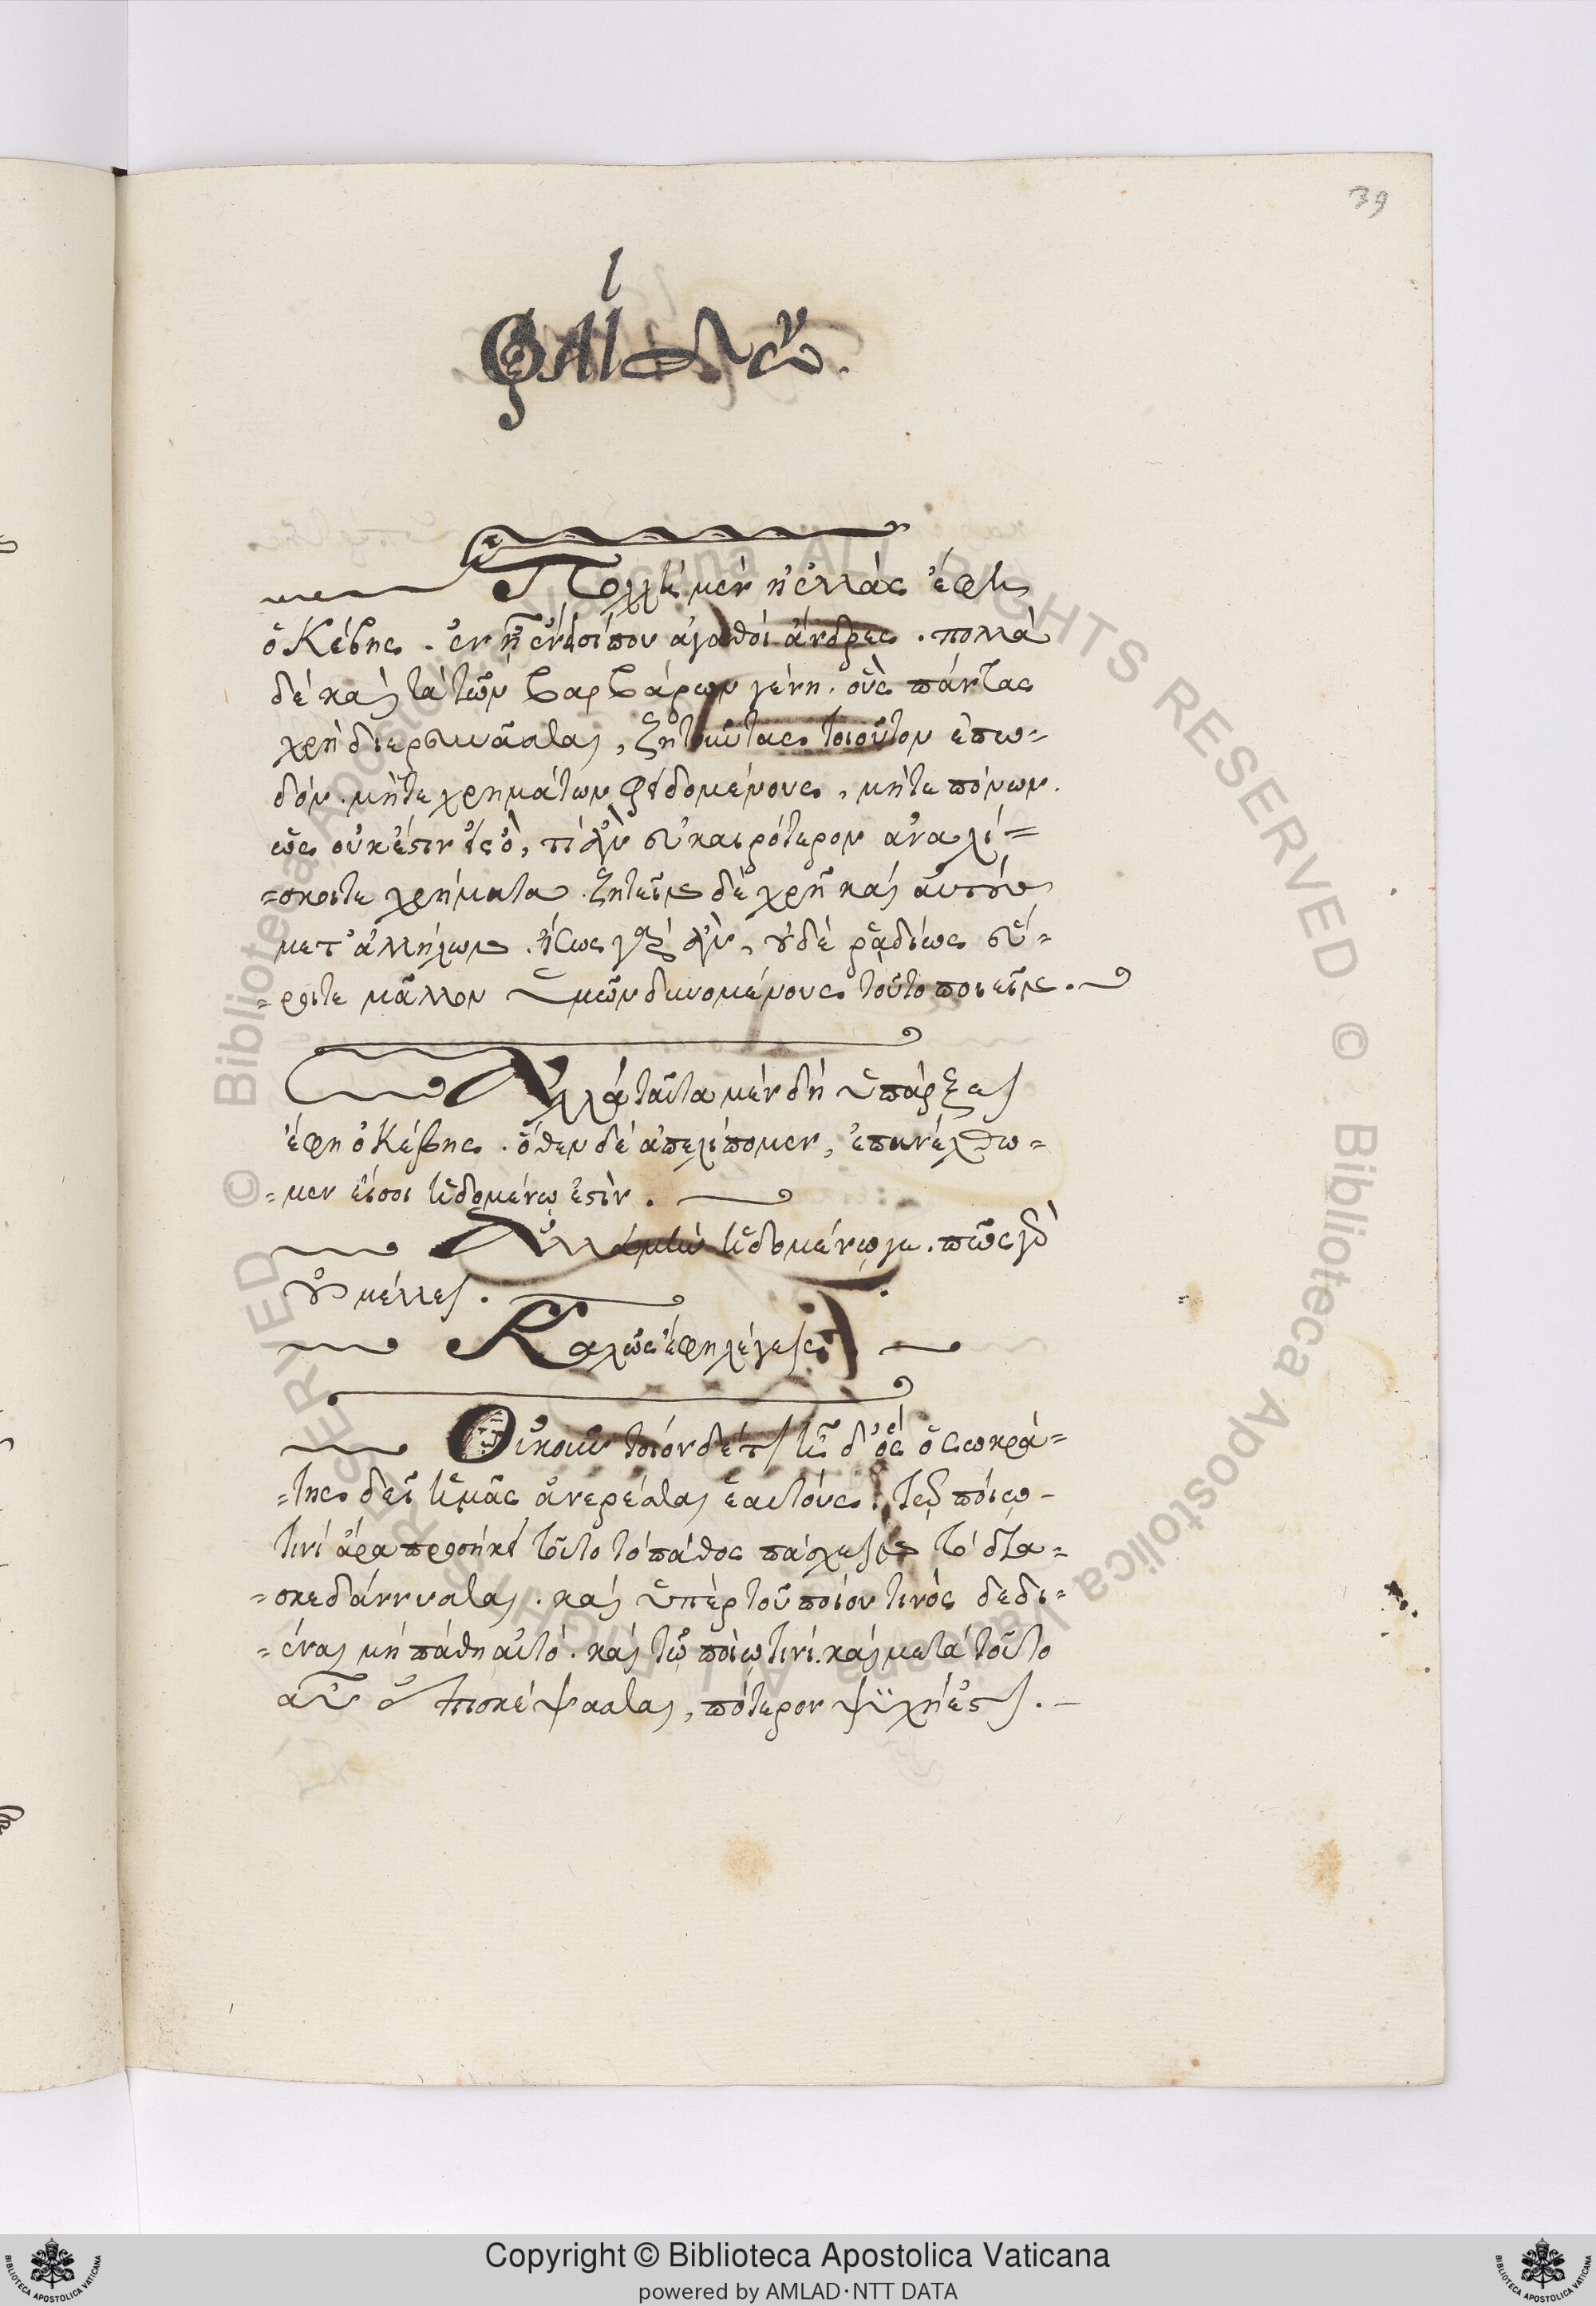 39
ι
ΦΑΙΔων.
Πολλὴ μὲν ἡ ἑλλὰς ἔφη
ὁ Κέβης. ἐν ᾗ ἔνεισί που ἀγαθοὶ ἄνδρες. πολλὰ
δὲ καὶ τὰ τῶν βαρβάρων γένη. οὓς πάντας
χρὴ διερευνᾶσθαι, ζητοῦντας τοιοῦτον ἐπω-
δόν. μήτε χρημάτων φειδομένους, μήτε πόνων.
ὡς οὐκ ἔστιν εἰς ὅ, τι ἂν εὐκαιρότερον ἀναλί=
=σκοιτε χρήματα. ζητεῖν δὲ χρῆ καὶ αὐτοὺς
μετ' ἀλλήλων. ἴσως γὰρ ἂν, οὐδὲ ῥᾳδίως εὕ-
=ροιτε μᾶλλον ὑμῶν δυναμένους τοῦτο ποιεῖν.
Ἀλλὰ ταῦτα μὲν δὴ ὑπάρξει
ἔφη ὁ Κέβης. ὅθεν δὲ ἀπελίπομεν, ἐπανέλθω=
=μεν εἴσοι ἡδομένῳ ἐστίν.
Ἀλλὰ μὴν ἡδομένῳ γε. πῶς γὰρ
οὐ μέλλει.
Καλῶς ἔφη λέγεις.
Οὐκοῦν τοιόνδέ τι ἦ δ' ὃς ὁ σωκρά=
=της δεῖ ἡμᾶς ἀνερέσθαι ἑαυτούς. τῷ ποίῳ
τινὶ ἄρα προσήκει τοῦτο τὸ πάθος πάσχειν τὸ δια=
=σκεδάννυσθαι. καὶ ὑπὲρ τοῦ ποίου τινὸς δεδι=
=έναι μὴ πάθῃ αὐτό. καὶ τῷ ποίῳ τινί. καὶ μετὰ τοῦτο
αὖ ἐπισκέψασθαι, πότερον ψυχή ἐστι.
Copyright © Biblioteca Apostolica Vaticana
powered by AMLAD·NTT DATA